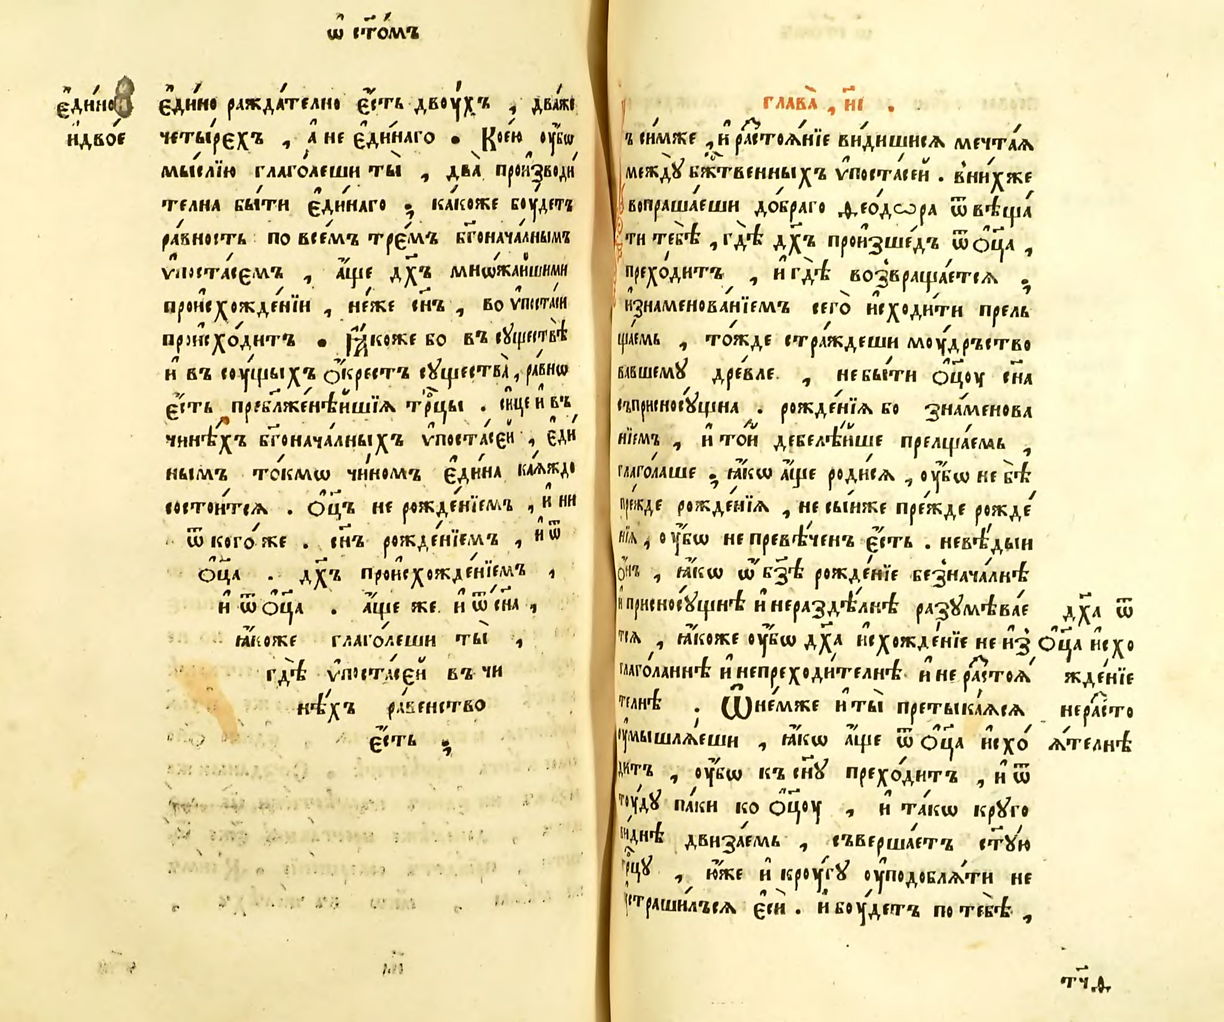 ѡ҆ ст҃о́мъ
є҆ди́но
и҆двоє́
є҆ди́но ражда́телно є҆́сть двоу́хъ , два́жѐ
четы́рєхъ , а҆ не є҆ди́наго . Коє́ю ᲂу҆́бѡ
мы́слїю глаго́леши ты̀ , два̀ производи
телна бы́ти є҆ди́наго ; ка́коже бу́детъ
ра́вность по всѣ́мъ трє́мъ бг҃онача́лнымъ
ѵ҆поста́сємъ , а҆́ще дх҃ъ мнѡ́жайшими
происхожде́нїи , не́же сн҃ъ , во ѵ҆поста́си
происхо́дитъ . Ꙗ҆́коже бо въ сꙋществѣ̀
и҆ въ соу́щыхъ ѻ҆́крестъ сꙋщества̀ , ра́внѡ
є҆́сть пребл҃же́ннѣйшїѧ трⷪ҇цы . си́це и҆ въ
чинѣ́хъ бг҃онача́лныхъ ѵ҆поста́сєй , є҆ди
нымъ то́кмѡ чи́номъ є҆ди́на ка́ѧждо
состои́тсѧ . Ѻ҆ц҃ъ не рожде́нїємъ , и҆ ни
ѿ кого́же . сн҃ъ рожде́нїємъ , и҆ ѿ
ѻ҆ц҃а . дх҃ъ происхожде́нїємъ ,
и҆ ѿ ѻ҆ц҃а . а҆́ще же и҆ ѿ сн҃а ,
ꙗ҆́коже глаго́леши ты̀ ,
гдѣ̀ ѵ҆поста́сєй въ чи
нѣ́хъ ра́венство
є҆́сть ;
глава̀ , н҃і .
ъ си́мже , и҆ разстоѧ́нїе ви́дишисѧ мечта́ѧ
междꙋ̀ бж҃твенныхъ ѵ҆поста́сей . в̾ни́хже
вопраша́еши до́браго ѳео́дѡра ѿвѣща́
ти тебѣ̀ , гдѣ̀ дх҃ъ произше́дъ ѿ ѻ҆ц҃а ,
прехо́дитъ , и҆ гдѣ̀ воз̾враща́етсѧ ;
и҆знаменова́нїемъ сего̀ и҆сходи́ти прель
ща́емь , то́жде стра́ждеши моу́дрьство
вавшемꙋ дре́вле . , небы́ти ѻ҆ц҃оу сн҃а
съприсносꙋ́щна . рожде́нїѧ бо зна́менова
нїемъ , и҆ то́й дебелѣ́йше прелща́емь ,
глаго́лаше ; ꙗ҆́кѡ а҆́ще роди́сѧ , ᲂу҆́бѡ не бѣ̀
пре́жде рожде́нїѧ , не сы́иже пре́жде рожде́
нїѧ , ᲂу҆́бѡ не превѣ́ченъ є҆́сть . невѣ́дыи
ѻ҆́нъ , ꙗ҆́кѡ ѡ҆ бз҃ѣ рожде́нїе без̾нача́лнѣ
и҆ присносꙋ́щнѣ и҆ нераздѣ́лнѣ разꙋмѣва́е
тсѧ , ꙗ҆́коже ᲂу҆́бѡ дх҃а и҆схожде́нїе не и҆з̾
глаго́ланнѣ и҆ непреходи́телнѣ и҆ не разстоѧ́
телнѣ . Ѿ не́мже и҆ ты̀ претыка́ѧсѧ
ᲂу҆мышлѧ́еши , ꙗ҆́кѡ а҆́ще ѿ ѻ҆ц҃а и҆схо́
дитъ , ᲂу҆́бѡ къ сн҃ꙋ прехо́дитъ , и҆ ѿ
тоу́дꙋ па́ки ко ѻ҆ц҃оу , и҆ та́кѡ крꙋго
ви́днѣ движа́емь , съверша́етъ ст҃ꙋ́ю
трⷪ҇цꙋ , ю҆́же и҆ кроу́гꙋ ᲂу҆подоблѧ́ти не
ᲂу҆страши́лъсѧ є҆сѝ . и҆ бу́детъ по тебѣ̀ ,
дх҃а ѿ
ѻ҆ц҃а и҆схо
жде́нїе
нера́сто
ѧ́телнѣ
тч҃ѳ